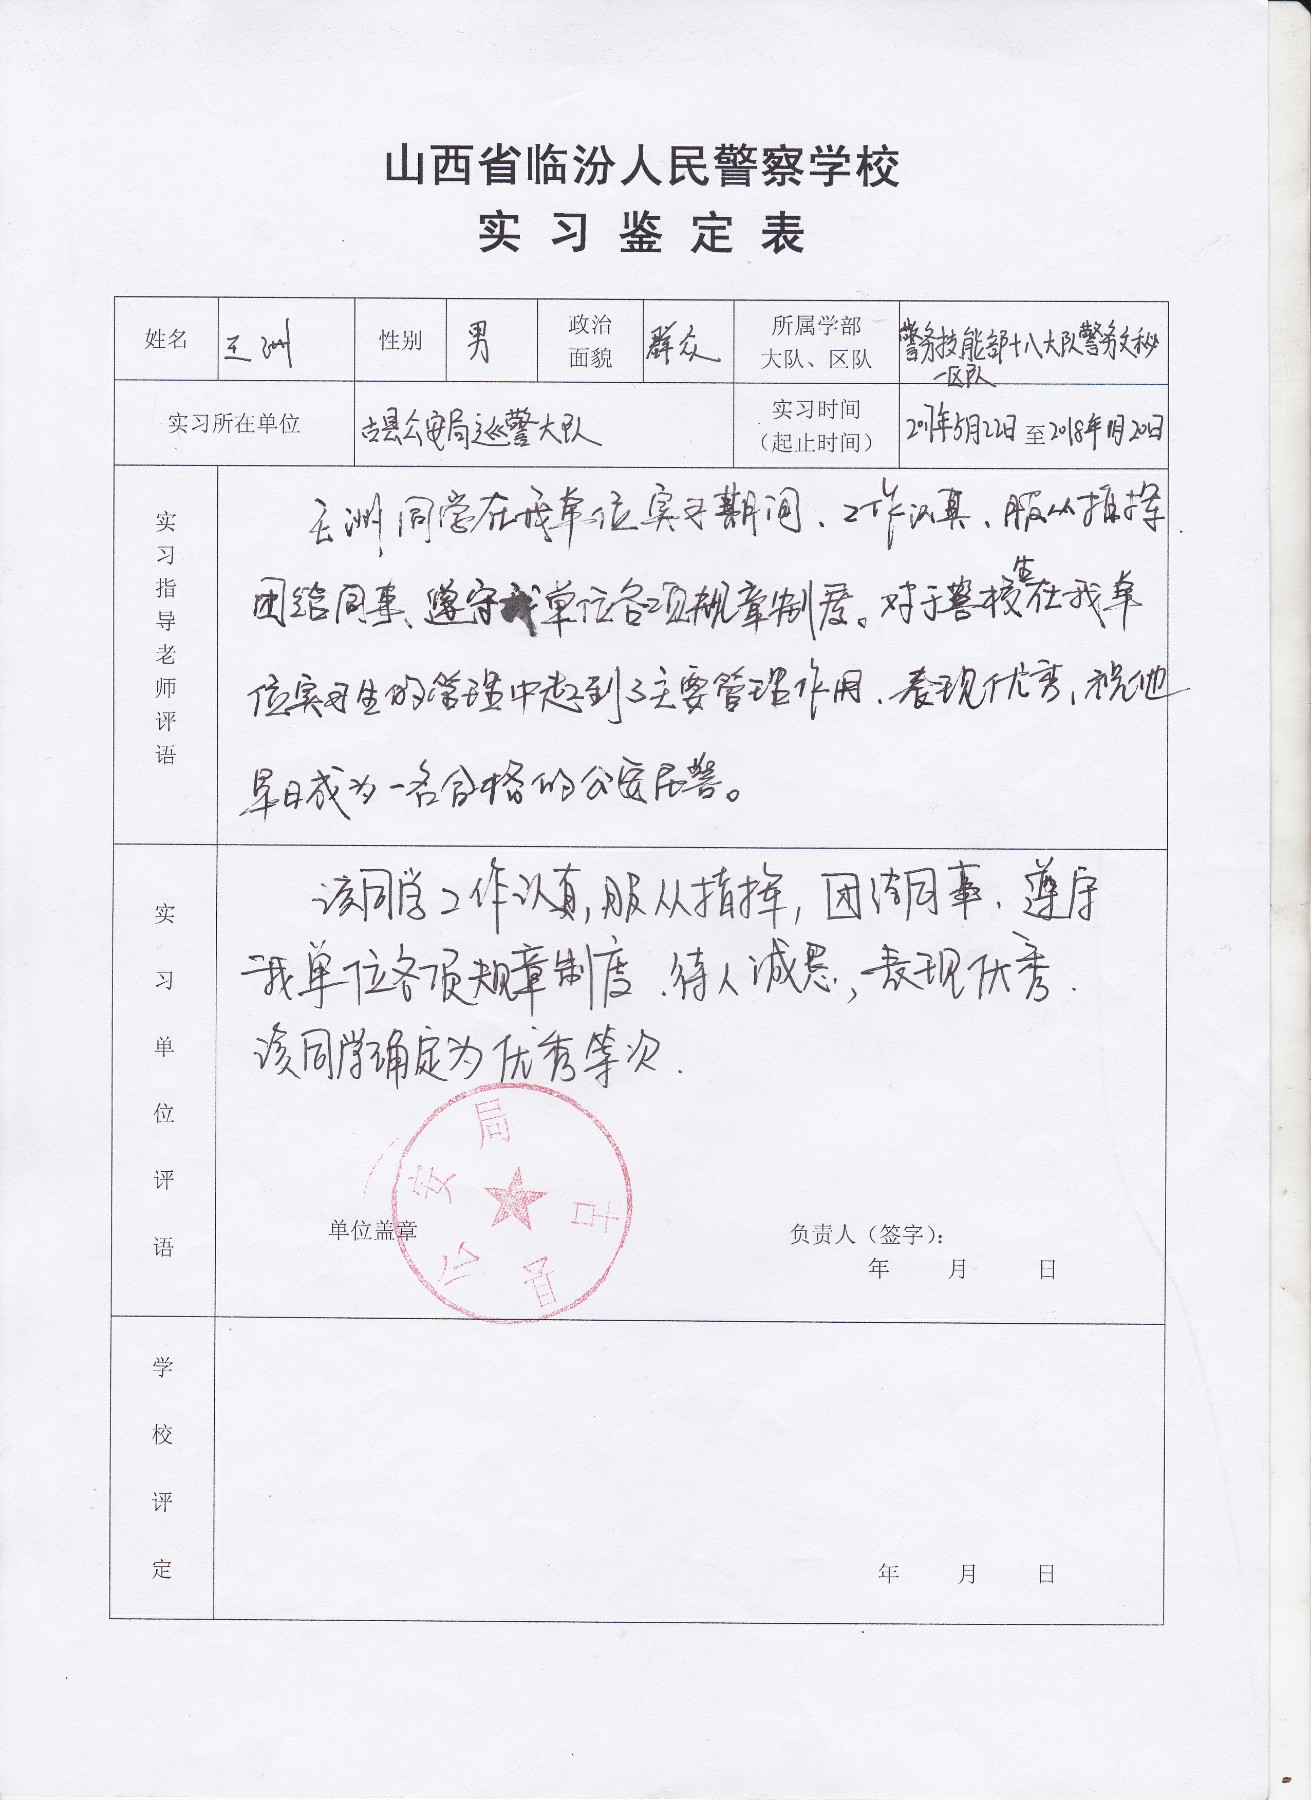 山西省临汾人民警察学校
实习鉴定表
姓名 王洲 性别 男 政治面貌 群众 所属学部大队、区队 警务技能部十八大队警务文秘一区队
实习所在单位 古县公安局巡警大队 实习时间（起止时间） 2017年5月22日至2018年1月20日
实习指导老师评语
王洲同学在我单位实习期间、工作认真、服从指挥
团结同事、遵守我单位各项规章制度。对于警校生在我单
位实习生的管理中起到了主要管理作用、表现优秀，祝他
早日成为一名合格的公安民警。
实习单位评语
该同学工作认真，服从指挥，团结同事、遵守
我单位各项规章制度、待人诚恳，表现优秀.
该同学确定为优秀等次.
古县公安局
单位盖章 负责人（签字）：
年 月 日
学校评定
年 月 日